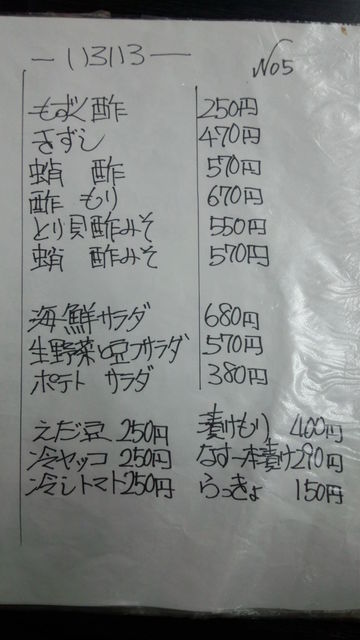 ーいろいろー
No5
もずく酢 250円
きずし 470円
蛸 酢 570円
酢 もり 670円
とり貝酢みそ 550円
蛸 酢みそ 570円
海鮮サラダ 680円
生野菜と豆フサラダ 570円
ポテト サラダ 380円
えだ豆 250円 漬けもり 400円
冷ヤッコ 250円 なす一本漬け290円
冷しトマト250円 らっきょ 150円